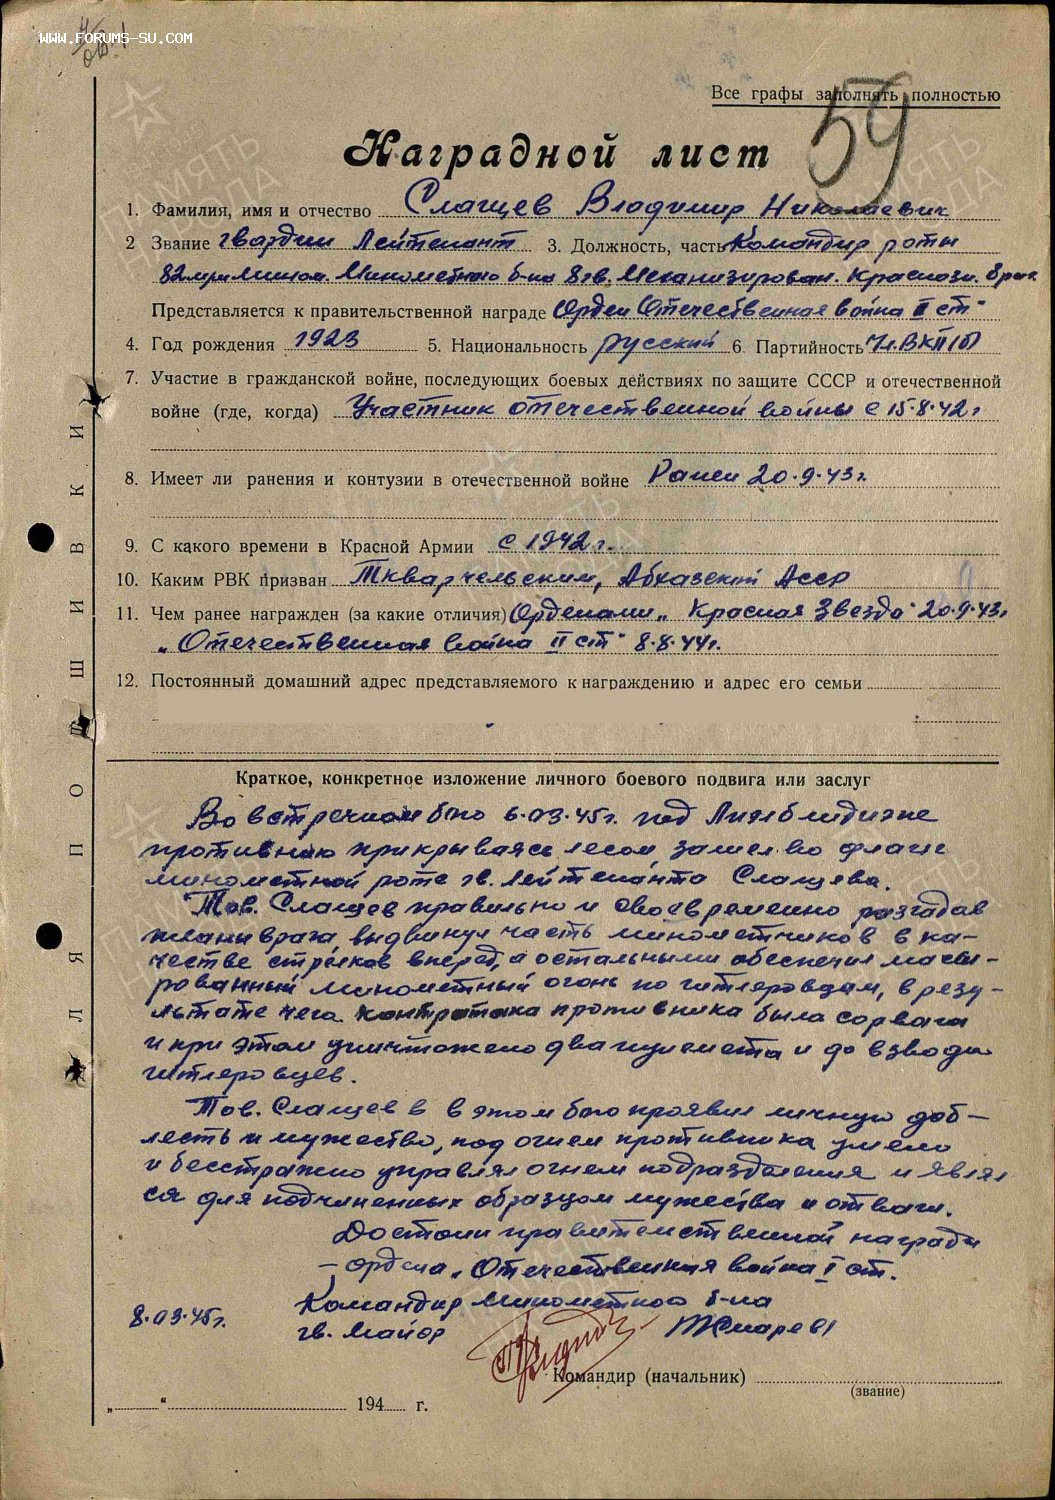 WWW.FORUMS-SU.COM
Все графы заполнять полностью
59
Наградной лист
1. Фамилия, имя и отчество Слащев Владимир Николаевич
2 Звание гвардии Лейтенант 3. Должность, часть Командир роты
82мм Миномётного б-на 8 гв. Механизирован. Краснозн. Бриг.
Представляется к правительственной награде Орден Отечественная война II ст"
4. Год рождения 1923 5. Национальность русский 6. Партийность Чл. ВКП(б)
7. Участие в гражданской войне, последующих боевых действиях по защите СССР и отечественной
войне (где, когда) Участник отечественной войны с 15.8.42г
8. Имеет ли ранения и контузии в отечественной войне Ранен 20.9.43г.
9. С какого времени в Красной Армии с 1942г.
10. Каким РВК призван Ткварчельским, Абхазской Асср
11. Чем ранее награжден (за какие отличия) Орденами „Красная Звезда" 20.9.43г
„Отечественная война II ст" 8.8.44г.
12. Постоянный домашний адрес представляемого к награждению и адрес его семьи
Краткое, конкретное изложение личного боевого подвига или заслуг
Во встречном бою 6.03.45г. под
противник прикрываясь лесом, зашел во фланг
минометной роте гв. Лейтенанта Слащева.
Тов. Слащев правильно и своевременно разгадав
планы врага, выдвинул часть минометчиков в ка-
честве стрелков вперед, а остальными обеспечил масси-
рованный минометный огонь по гитлеровцам, в резу-
льтате чего контратака противника была сорвана
и при этом уничтожено два пулемета и до взвода
гитлеровцев.
Тов. Слащев в в этом бою проявил личную доб-
лесть и мужество, под огнем противника умело
и бесстрашно управлял огнем подразделения и являл
ся для подчиненных образцом мужества и отваги.
Достоин правительственной награды
– ордена „Отечественная война I ст.
8.03.45г. Командир Минометного б-на
гв. Майор
Командир (начальник)
(звание)
„ “ 194 г.
ДЛЯ ПОДШИВКИ
ПАМЯТЬ НАРОДА